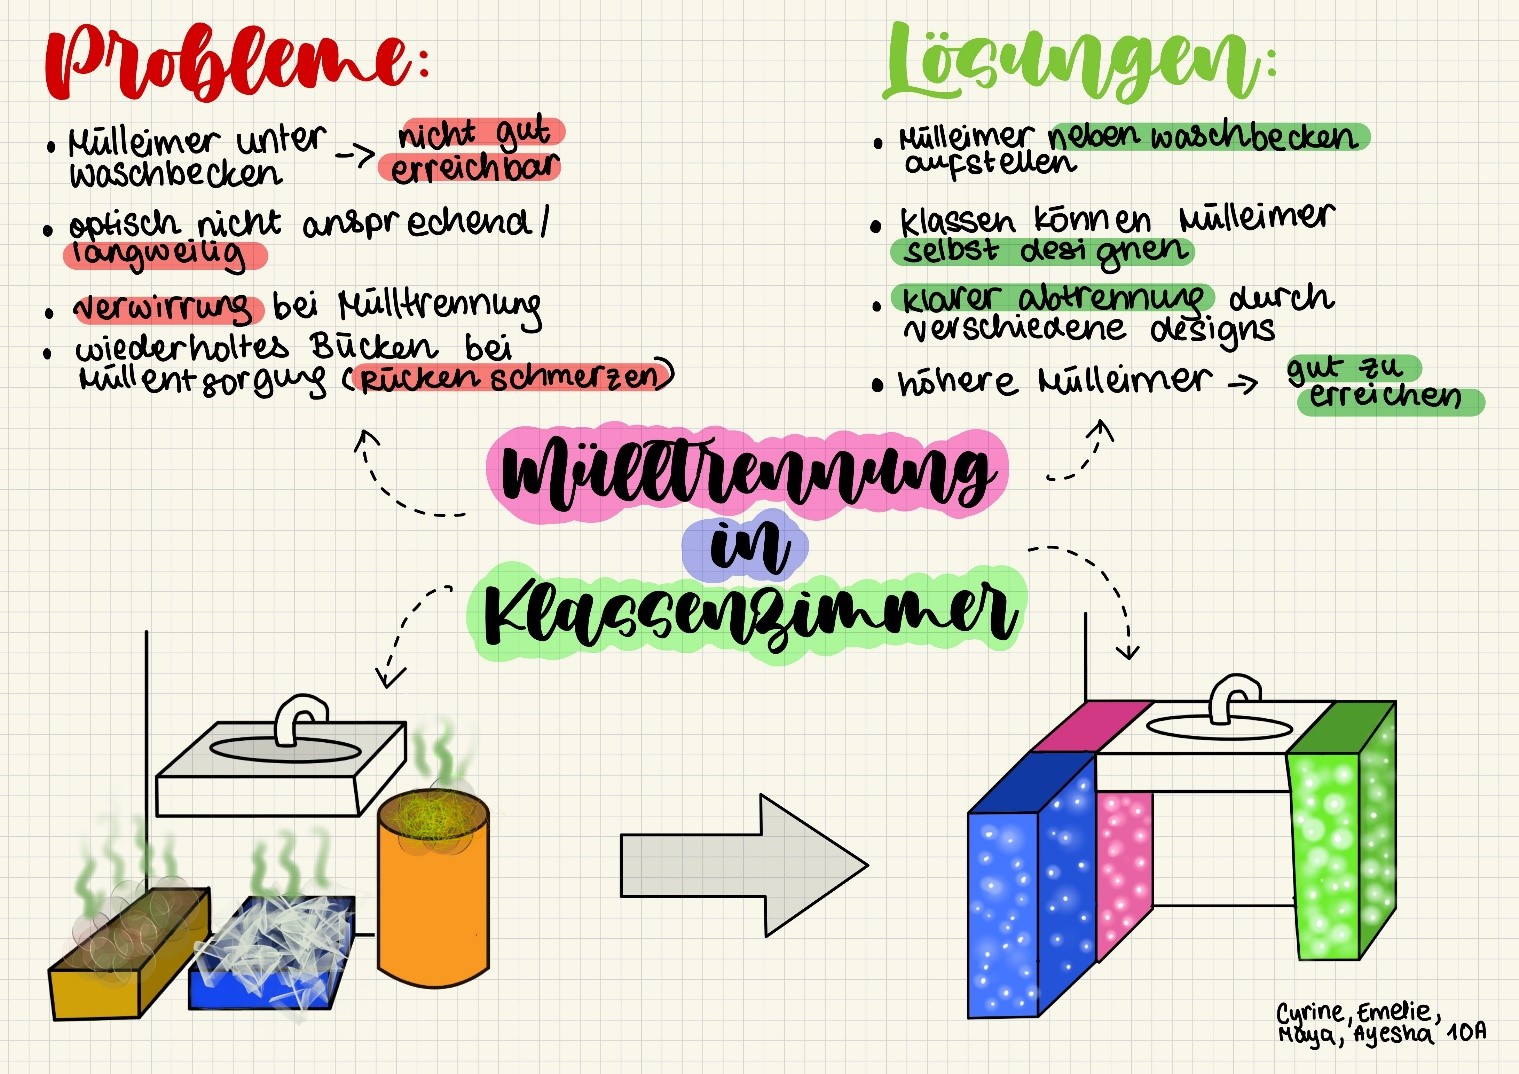 Probleme:
• Mülleimer unter -> nicht gut
waschbecken erreichbar
• optisch nicht ansprechend/
langweilig
• verwirrung bei Mülltrennung
• wiederholtes Bücken bei
Müllentsorgung (Rückenschmerzen)
Lösungen:
• Mülleimer neben waschbecken
aufstellen
• Klassen können Mülleimer
selbst designen
• klarer abtrennung durch
verschiedene designs
• höhere Mülleimer -> gut zu
erreichen
Mülltrennung
in
Klassenzimmer
Cyrine, Emelie,
Maya, Ayesha 10A